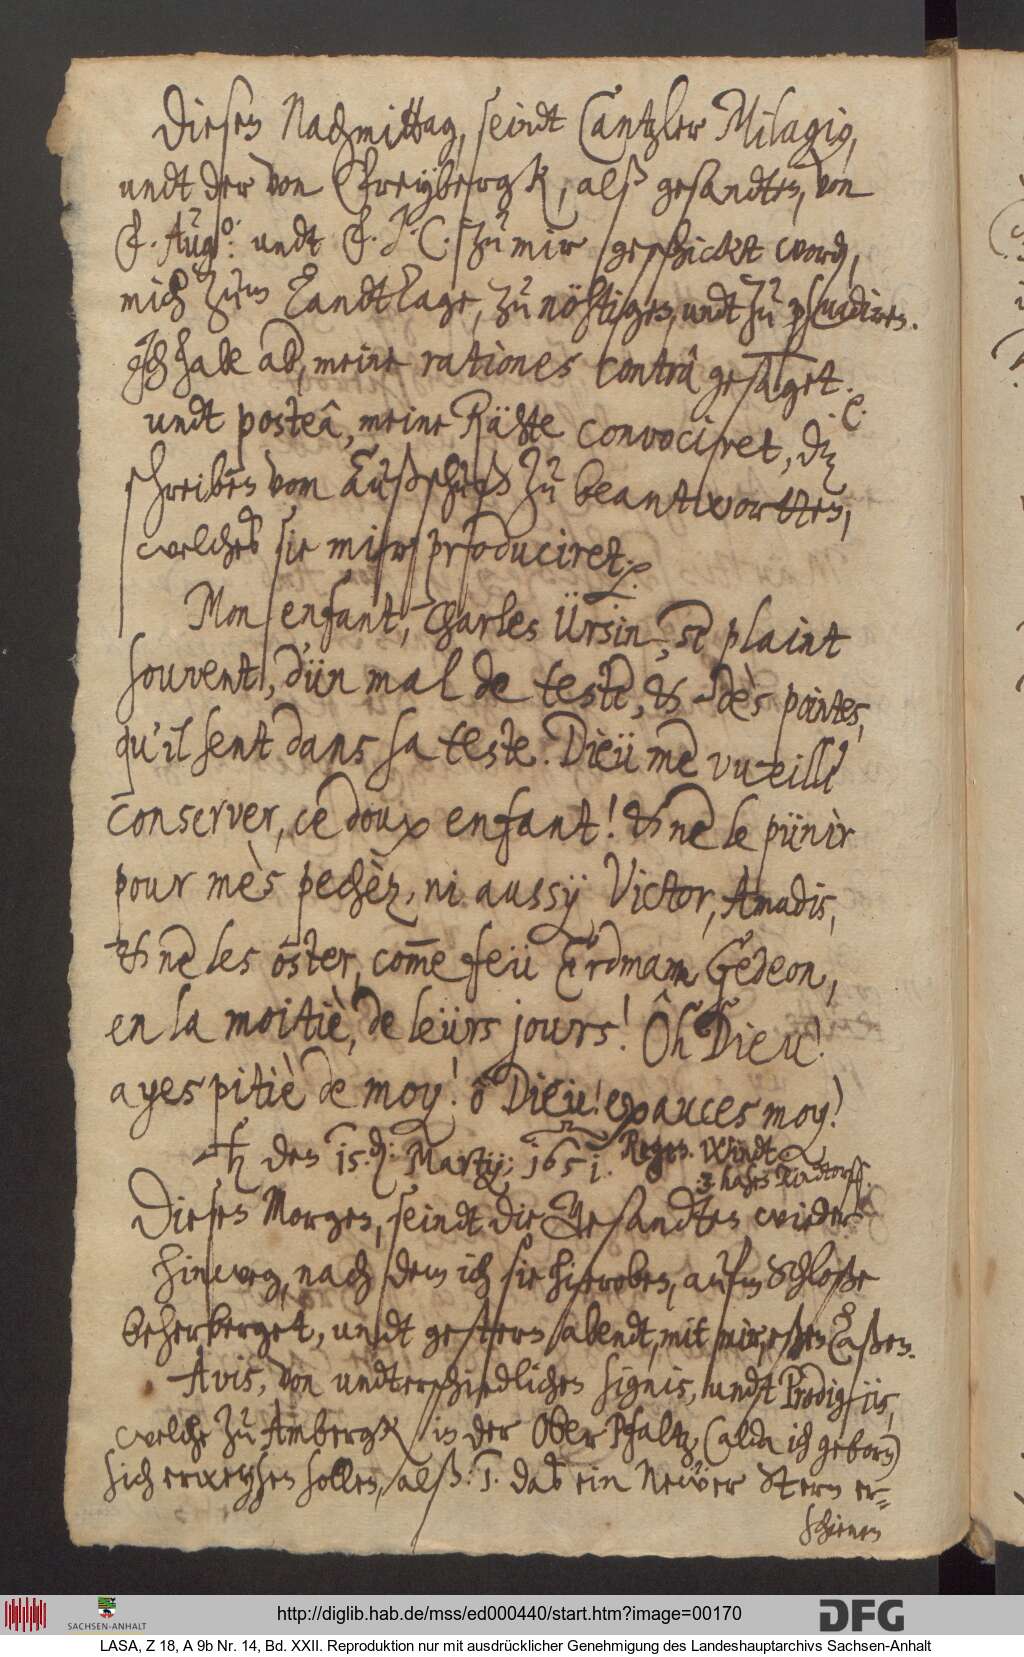 Diesen Nachmittag, seindt Cantzler Milagiq,
undt der von Freybergk, alß gesandten, von
F. Augo: undt F. J. C. zu mir geschickt word,
mich zum Landtage, zu nöhtigen, undt zu persuadiren.
Ich habe ab, meine rationes contrà gesaget. e.
undt posteâ, meine Rähte convociret, die
schreiben vom Außschuß zu beantworten,
welches sie mir produciret.
Mon enfant, Charles Ürsin, se plaint
souvent, d'ün mal de teste, & dès pointes,
qu'il sent dans sa teste. Dieü me vueille
conserver, ce doux enfant! & ne le pünir
pour mès pechèz, ni aussÿ Victor, Amadis,
& ne les oster, com̄e feü Erdmann Gedeon,
en la moitiè, de leürs jours! Ôh Dieu!
ayes pitiè de moy! ô Dieu! exauces moy!
♄ den 15. d: Martij; 1651. Regen. Windt
3 hasen Rindtorff.
Diesen Morgen, seindt die Gesandten wieder
hinweg, nach dem ich sie hieroben, aufm Schloße
beherberget, undt gestern abendt, mit mir, eßen laßen.
Avis, von undterschiedlichen signis, undt Prodigiis,
welche zu Ambergk in der Ober Pfaltz, (alda ich geborn)
sich erxeygen sollen, alß: 1. das ein Neüwer Stern er=
schienen
http://diglib.hab.de/mss/ed000440/start.htm?image=00170
SACHSEN-ANHALT
DFG
LASA, Z 18, A 9b Nr. 14, Bd. XXII. Reproduktion nur mit ausdrücklicher Genehmigung des Landeshauptarchivs Sachsen-Anhalt